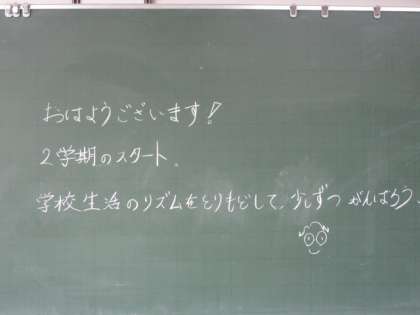 おはようございます!
2学期のスタート。
学校生活のリズムをとりもどして、少しずつ がんばろう。